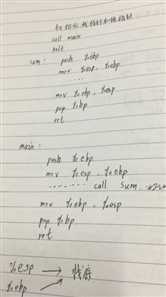 call main
halt
sum: push %ebp
mov %esp, %ebp
mov %ebp, %esp
pop %ebp
ret
main:
push %ebp
mov %esp, %ebp
....... call sum
mov %ebp, %esp
pop %ebp
ret
%esp → 栈底
%ebp